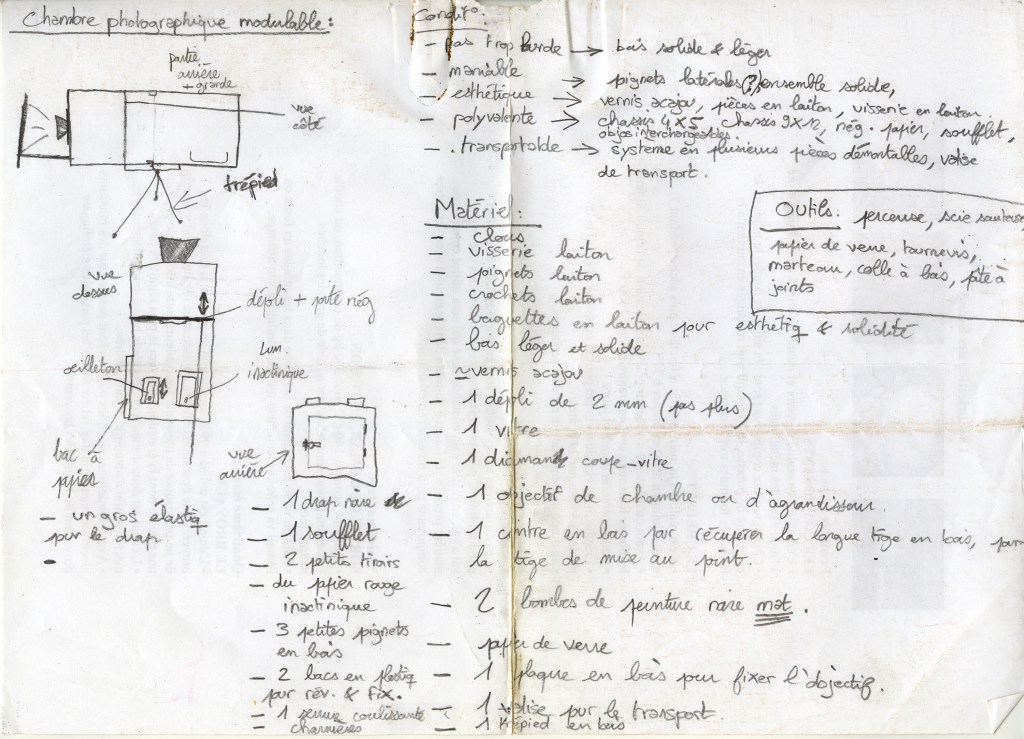 Chambre photographique modulable :
partie
arrière
+ grande
vue
côté
trépied
vue
dessus
dépoli + pâte nég
œilleton
Lum.
inactinique
bac à
ppier
vue
arrière
- un gros élastiq
pour le drap
- 1 drap noire
- 1 soufflet
- 2 petits tiroirs
- du ppier rouge
inactinique
- 3 petites pignets
en bois
- 2 bacs en plastiq
pour rév. & fix.
- 1 coulissante
charnières
Condit° :
- pas trop lourde → bois solide & léger
- maniable → pignets latérales (?), ensemble solide,
- esthétique → vernis acajou, pièces en laiton, visserie en laiton
- polyvalente → chassis 4x5, chassis 9x12, nég. papier, soufflet,
objos interchangeables.
- transportable → système en plusieurs pièces démontables, valise
de transport.
Matériel :
- clous
- visserie laiton
- poignets laiton
- crochets laiton
- baguettes en laiton pour esthétiq & solidité
- bois léger et solide
- vernis acajou
- 1 dépoli de 2 mm (pas plus)
- 1 vitre
- 1 diamand coupe-vitre
- 1 objectif de chambre ou d'agrandisseur.
- 1 cintre en bois par récupérer la longue tige en bois, pour
la tige de mise au point.
- 2 bombes de peinture noire mat.
- ppier de verre
- 1 plaque en bois pour fixer l'objectif.
- 1 valise pour le transport.
- 1 trépied en bois
Outils : perceuse, scie sauteuse,
papier de verre, tournevis,
marteau, colle à bois, pâte à
joints